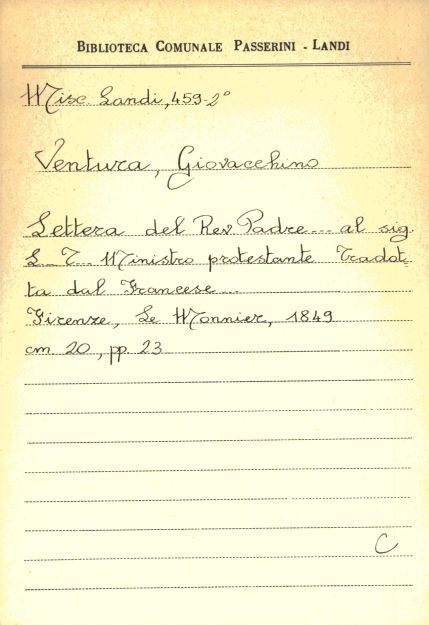 BIBLIOTECA COMUNALE PASSERINI - LANDI
Misc. Landi, 459-2°
Ventura, Giovacchino
Lettera del Rev. Padre ... al sig.
L... T... Ministro protestante Tradot-
ta dal Francese...
Firenze, Le Monnier, 1849
cm. 20, pp. 23
C